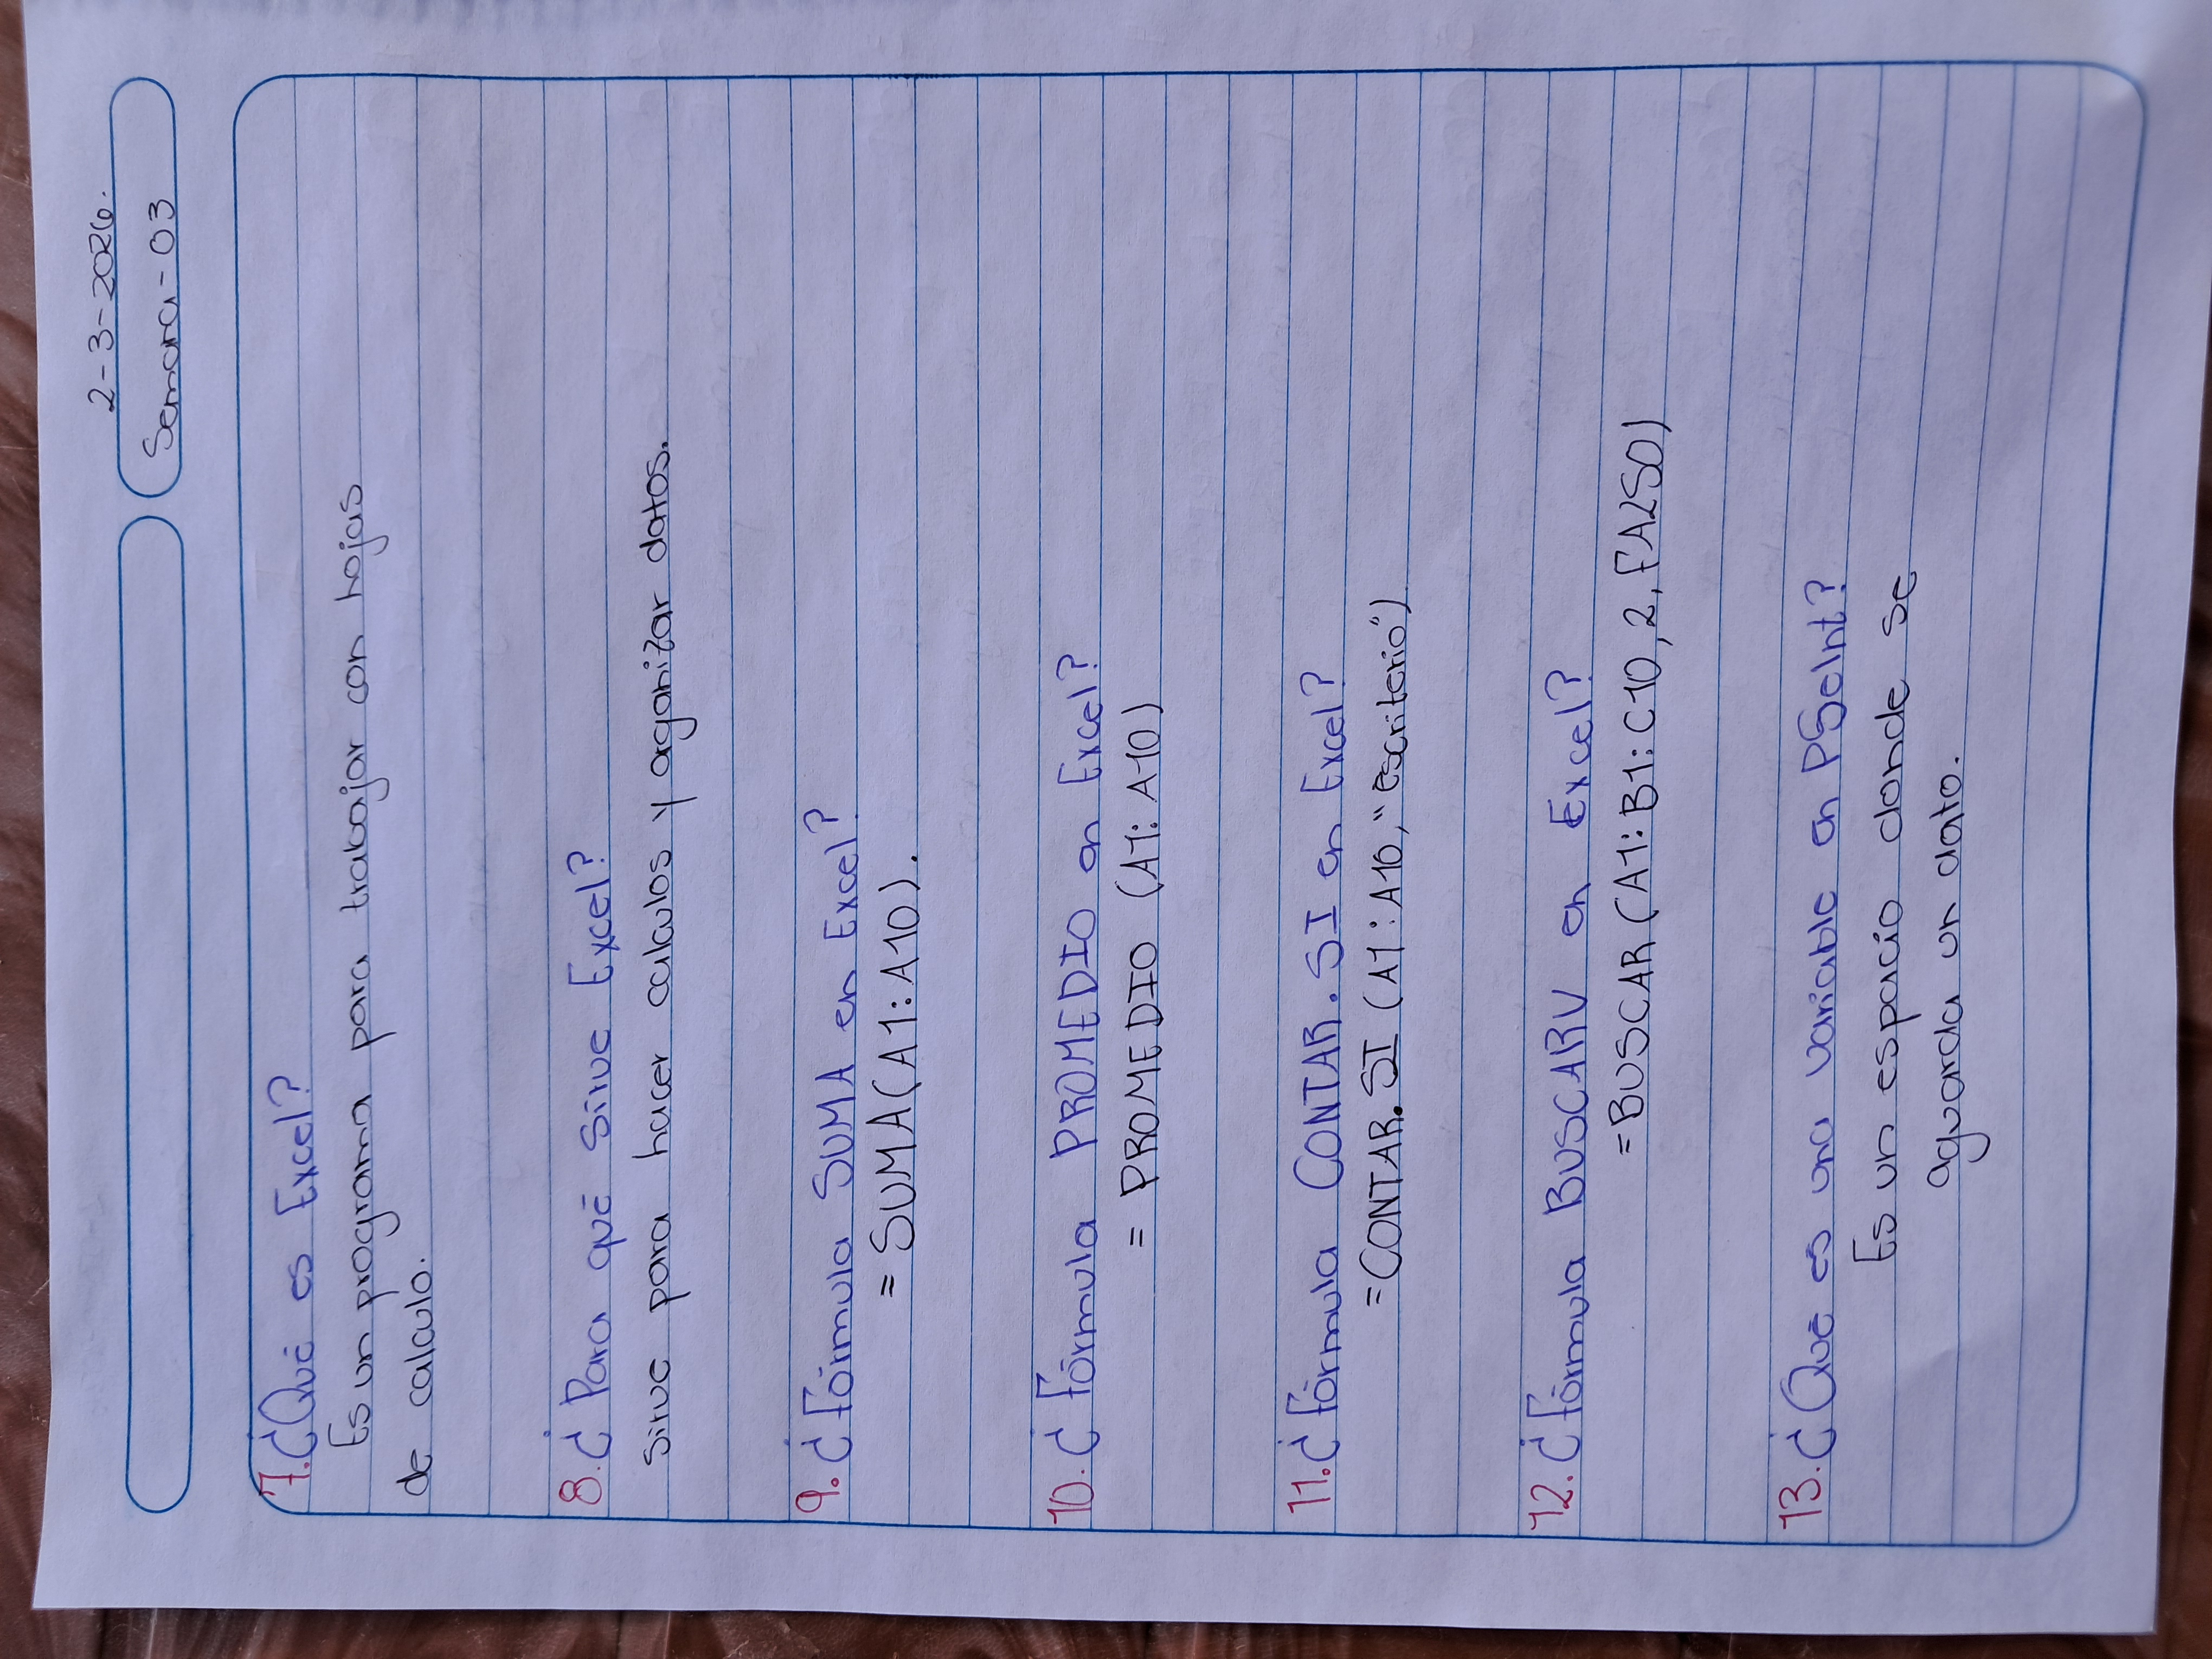 2-3-2026.
Semana-03
7. ¿Qué es Excel?
Es un programa para trabajar con hojas
de calculo.
8. ¿Para qué sirve Excel?
Sirve para hacer calculos y organizar datos.
9. ¿Fórmula SUMA en Excel?
= SUMA(A1:A10).
10. ¿Fórmula PROMEDIO en Excel?
= PROMEDIO (A1:A10)
11. ¿Fórmula CONTAR.SI en Excel?
=CONTAR.SI (A1:A10,"escriterio")
12. ¿Fórmula BUSCARV en Excel?
=BUSCAR(A1:B1:C10,2,FALSO)
13. ¿Qué es una variable en PSeInt?
Es un espacio donde se
aguarda un dato.